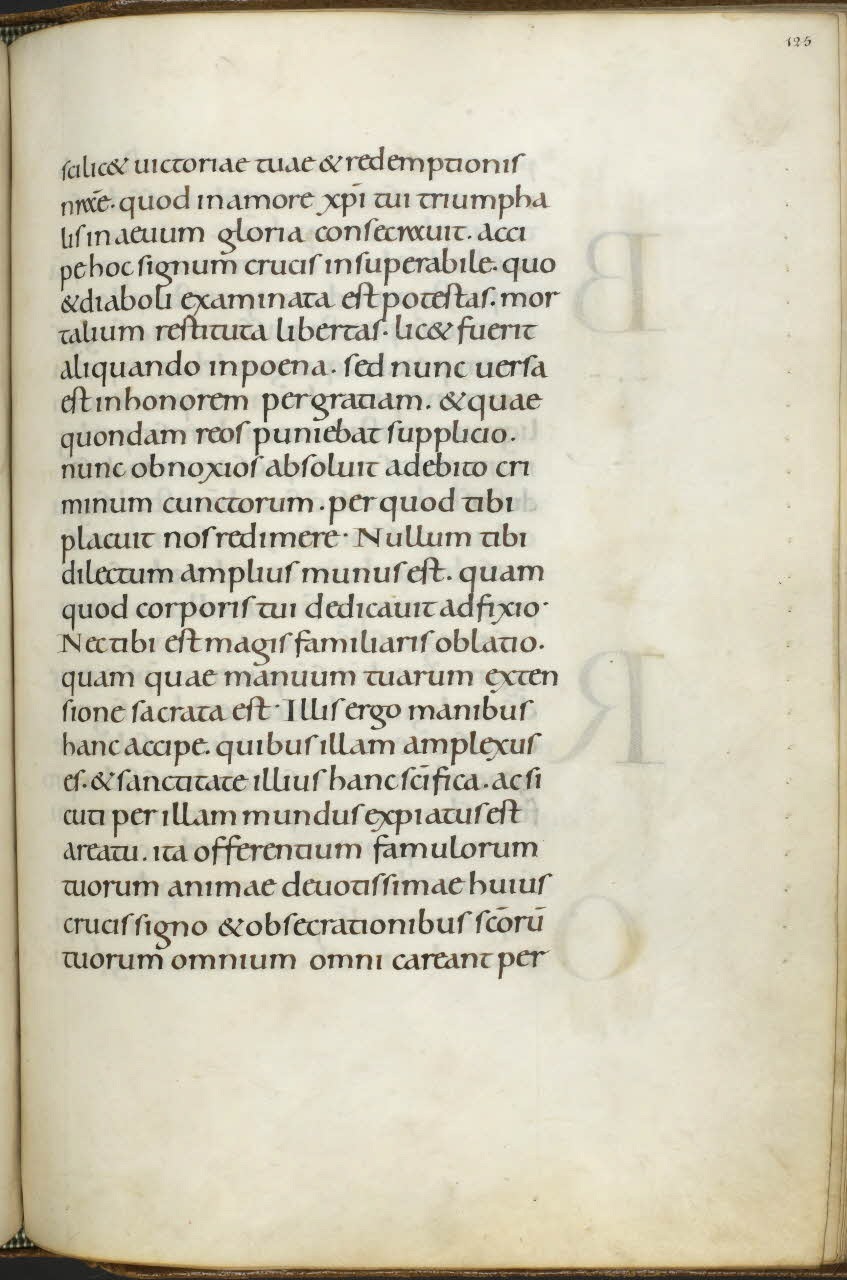 125
scilic& uictoriae tuae & redemptionis
nr̄ae. quod in amore xp̄i tui triumpha
lis in aeuum gloria consecrauit. acci
pe hoc signum crucis insuperabile. quo
& diaboli examinata est potestas. mor
talium restituta libertas. lic& fuerit
aliquando in poena. sed nunc uersa
est in honorem per gratiam. & quae
quondam reos puniebat supplicio.
nunc obnoxios absoluit a debito cri
minum cunctorum. per quod tibi
placuit nos redimere. Nullum tibi
dilectum amplius munus est. quam
quod corporis tui dedicauit adfixio.
Nec tibi est magis familiaris oblatio.
quam quae manuum tuarum exten
sione sacrata est. Illis ergo manibus
hanc accipe. quibus illam amplexus
es. & sanctitate illius hanc sc̄ifica. ac si
cuti per illam mundus expiatus est
a reatu. ita offerentium famulorum
tuorum animae deuotissimae huius
crucis signo & obsecrationibus sc̄orū
tuorum omnium omni careant per